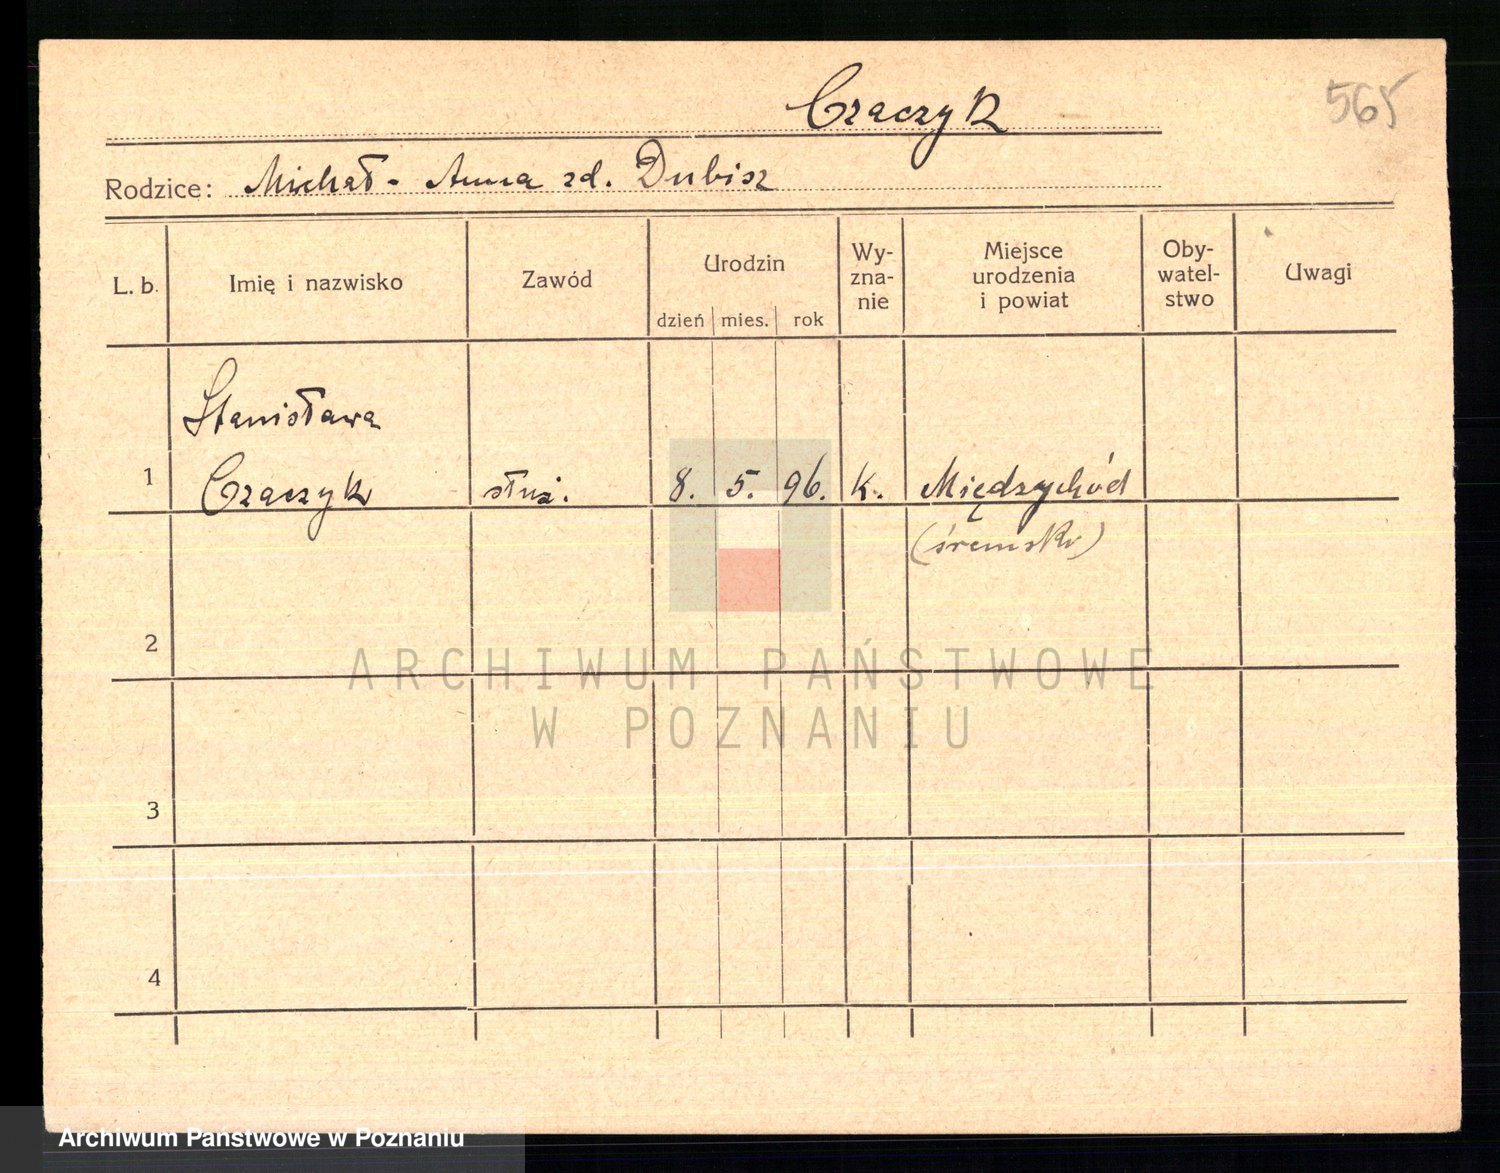 Czaczyk
565
Rodzice: Michał - Anna zd. Dubisz
L. b. Imię i nazwisko Zawód Urodzin Wy-zna-nie Miejsce urodzenia i powiat Oby-watel-stwo Uwagi
dzień mies. rok
Stanisława
1 Czaczyk służ. 8. 5. 96. k. Międzychód
(śremski)
2
ARCHIWUM PAŃSTWOWE
W POZNANIU
3
4
Archiwum Państwowe w Poznaniu